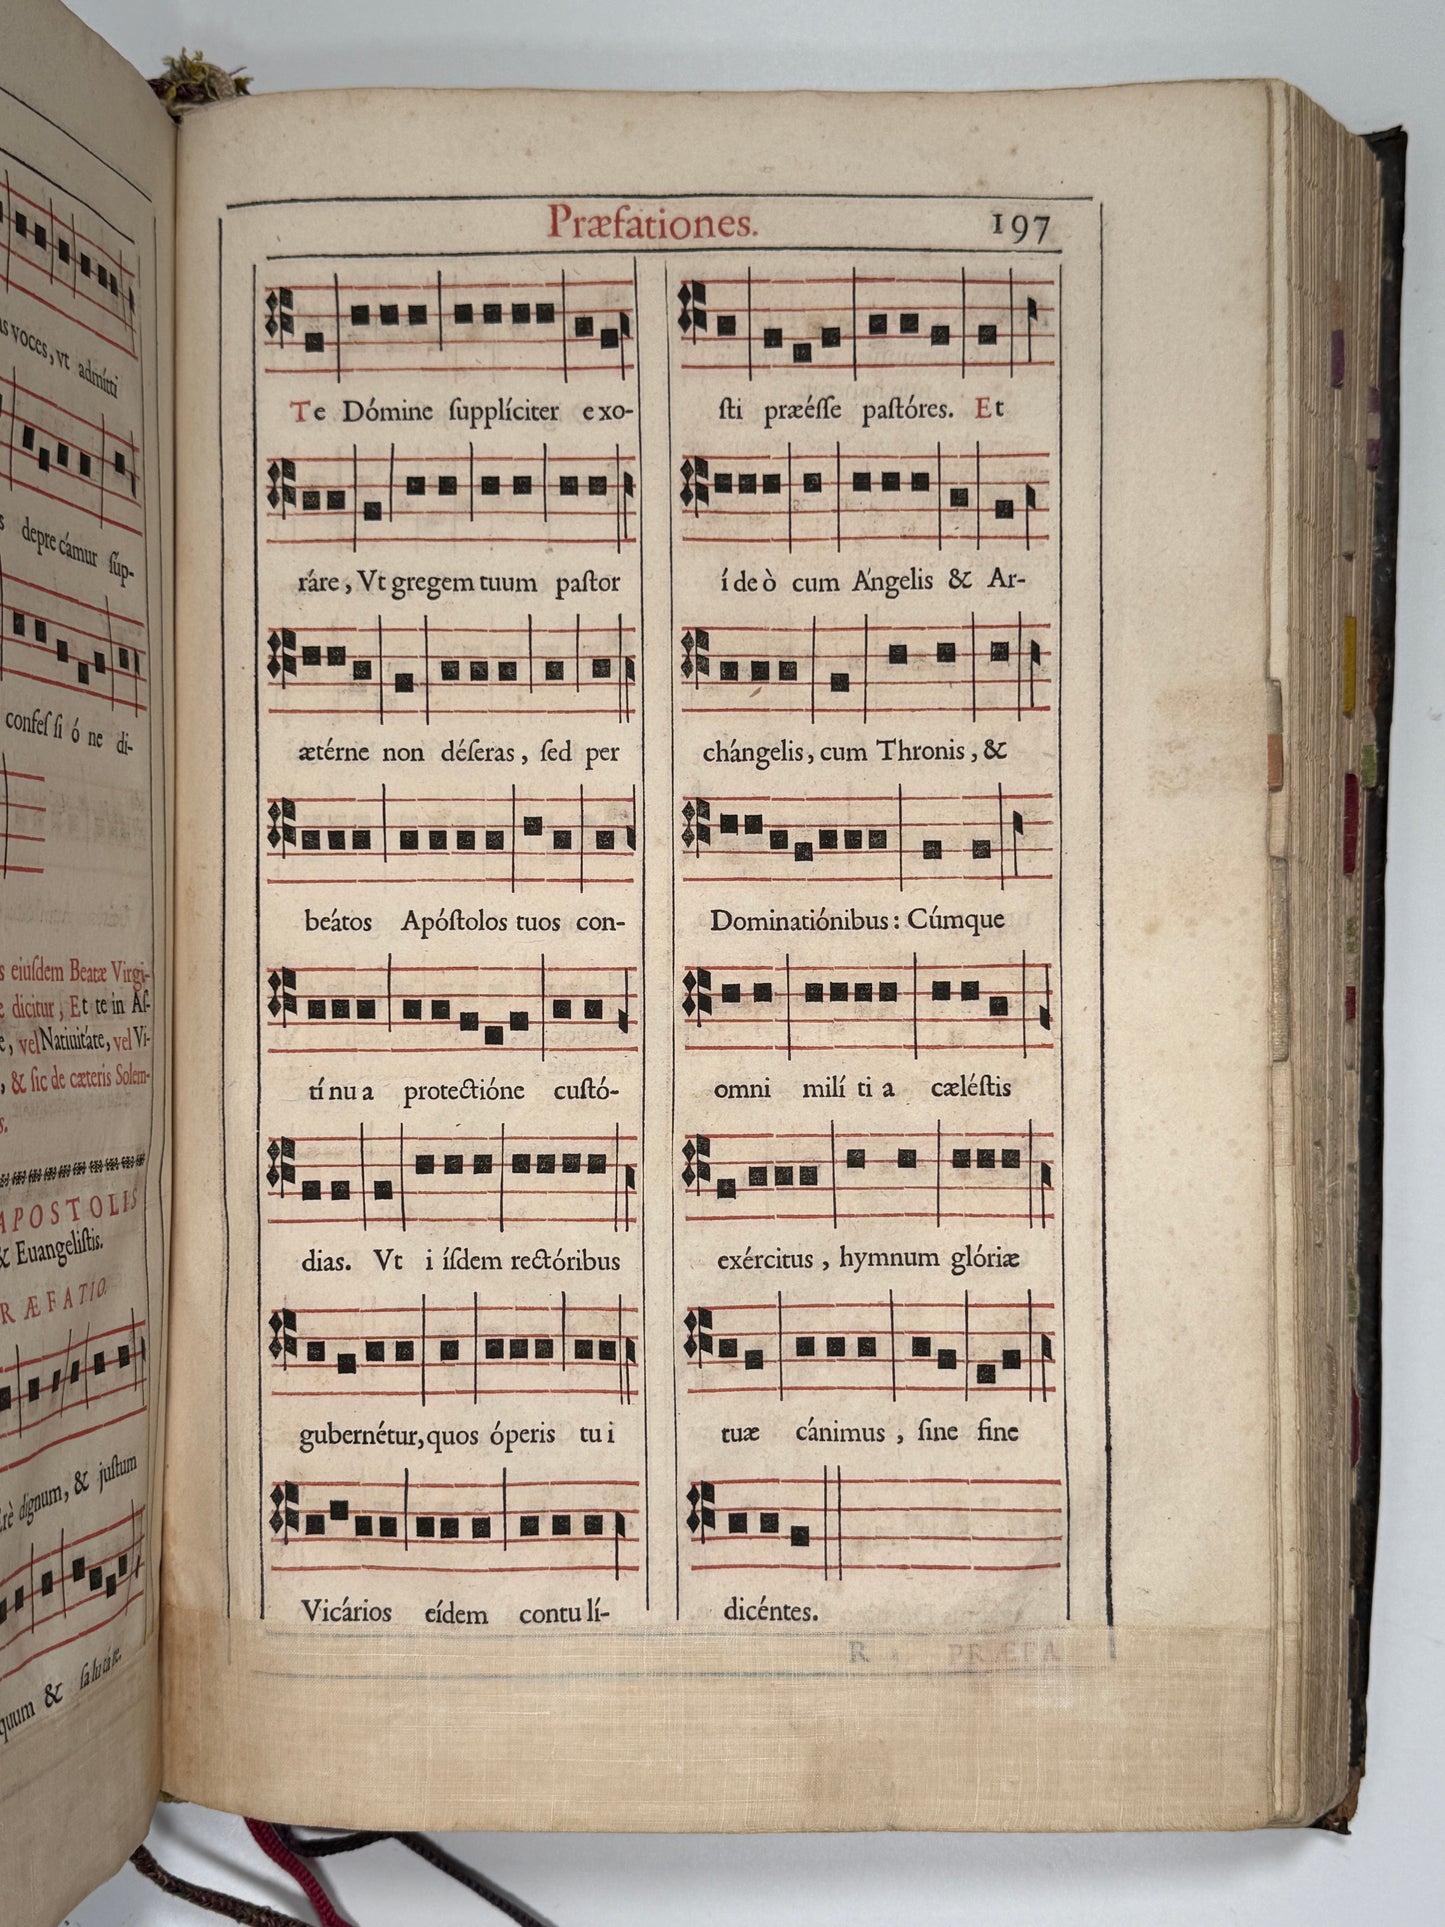 as voces, vt admitti
depre cámur súp-
confeſ ſi ó ne di-
s eiuſdem Beatæ Virgi-
e dicitur, Et te in Aſ-
e, vel Natiuitáte, vel Vi-
, & ſic de cæteris Solem-
s.
APOSTOLIS
& Euangeliſtis.
RÆFATIO.
rè dignum, & juſtum
quum & ſa lu tá re.
Præfationes. 197
Te Dómine ſupplíciter exo-
ráre, Vt gregem tuum paſtor
ætérne non déſeras, ſed per
beátos Apóſtolos tuos con-
tí nu a protectióne cuſtó-
dias. Vt i íſdem rectóribus
gubernétur, quos óperis tu i
Vicários eídem contu lí-
ſti præéſſe paſtóres. Et
í de ò cum Angelis & Ar-
chángelis, cum Thronis, &
Dominatiónibus: Cúmque
omni milí ti a cæléſtis
exércitus, hymnum glóriæ
tuæ cánimus, ſine fine
dicéntes.
R PRÆFA